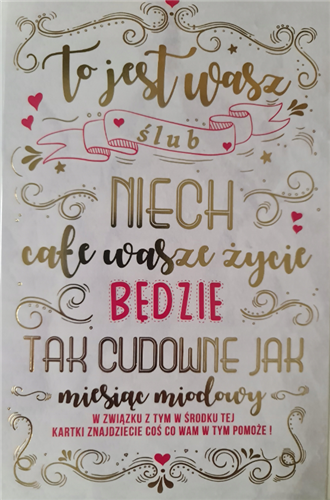 To jest wasz
ślub
NIECH
całe wasze życie
BĘDZIE
TAK CUDOWNE JAK
miesiąc miodowy
W ZWIĄZKU Z TYM W ŚRODKU TEJ
KARTKI ZNAJDZIECIE COŚ CO WAM W TYM POMOŻE !